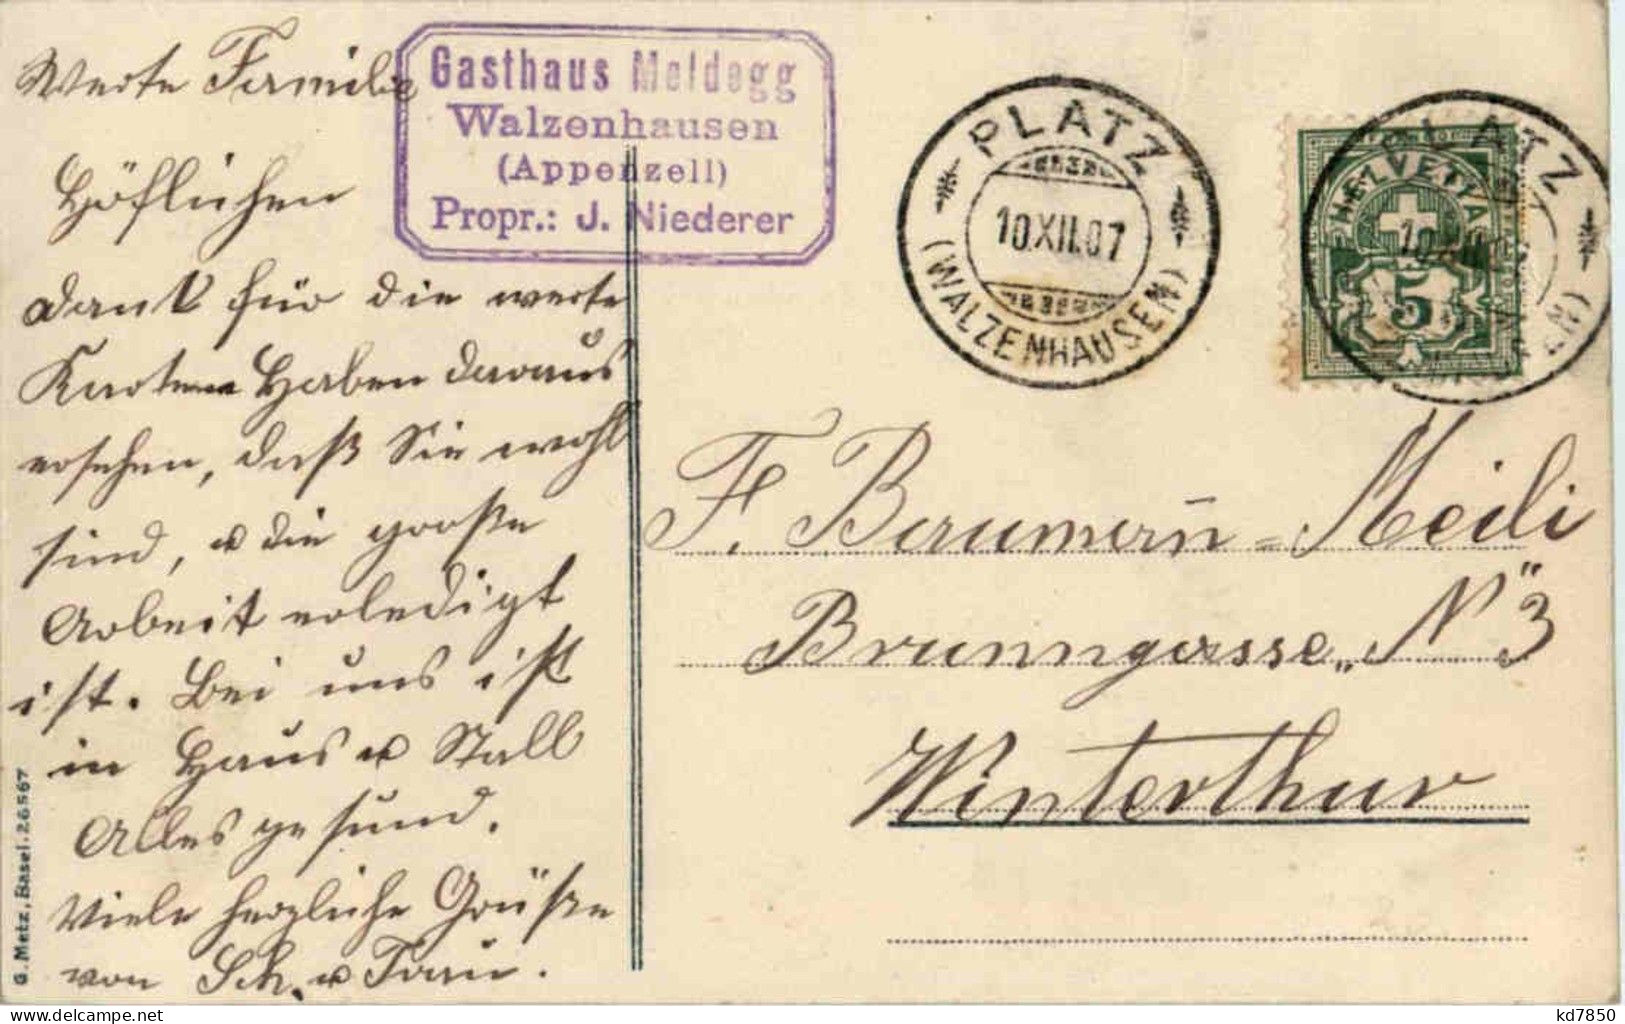 Werte Familie
Höflichen
Dank für die werte
Karten Haben daraus
ersehen, daß Sie wohl
sind, u die große
Arbeit erledigt
ist. Bei uns ist
in Haus u Stall
Alles gesund.
Viele herzliche Grüße
von Sch. u Frau.
G. Metz, Basel. 26567
Gasthaus Meldegg
Walzenhausen
(Appenzell)
Propr.: J. Niederer
PLATZ
10.XII.07
(WALZENHAUSEN)
HELVETIA
5
PLATZ
F. Baumann̄-Meili
Brunngasse „N" 3
Winterthur
kd7850